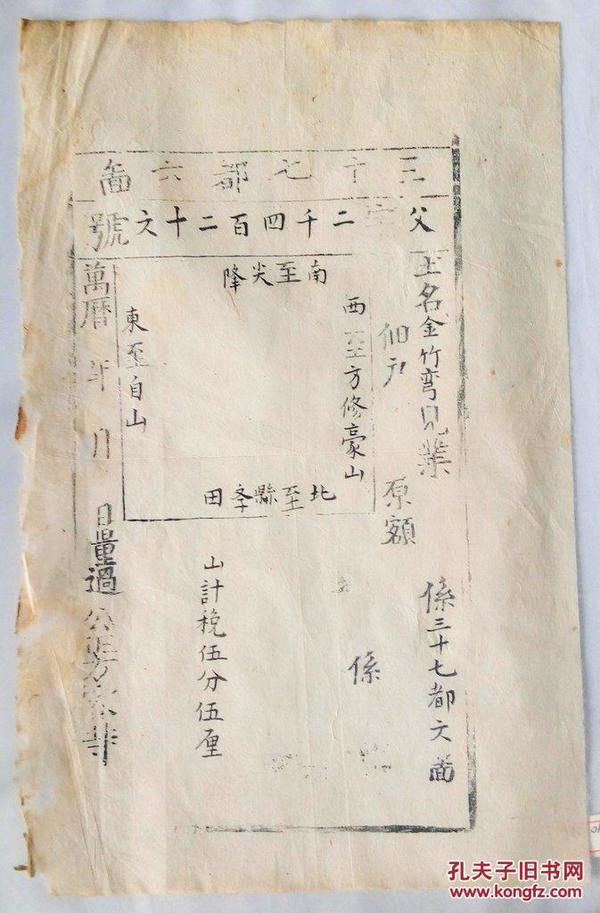 三十七都六啚
父字二千四百二十六號
土名金竹弯見業
係三十七都六啚
佃戶
原額
係
西至方修豪山
南至尖降
北至縣夆田
東至自山
山計稅伍分伍厘
萬曆 年 月 日量過公正
孔夫子旧书网
www.kongfz.com